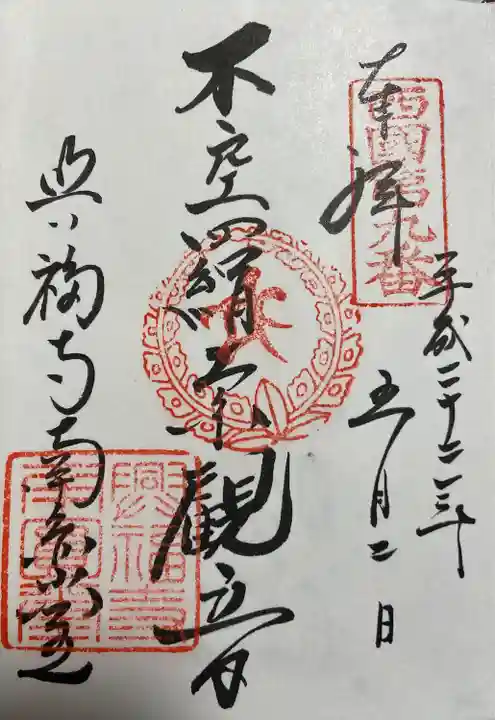 西國第九番
奉拝
平成二十二年
五月二日
不空羂索觀音
興福寺南圓堂
興福寺
南圓堂